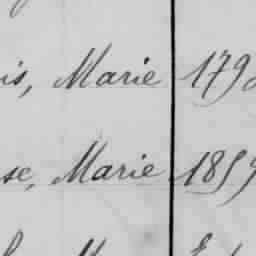 is, Marie 179
se, Marie 185